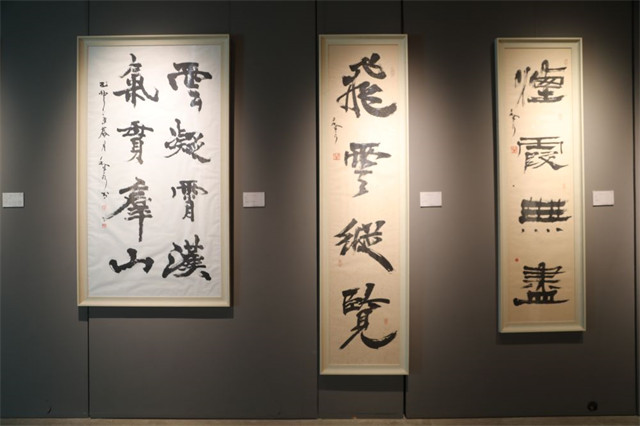 雲凝霄漢
氣貫羣山
飛雲縱覽
煙霞無盡